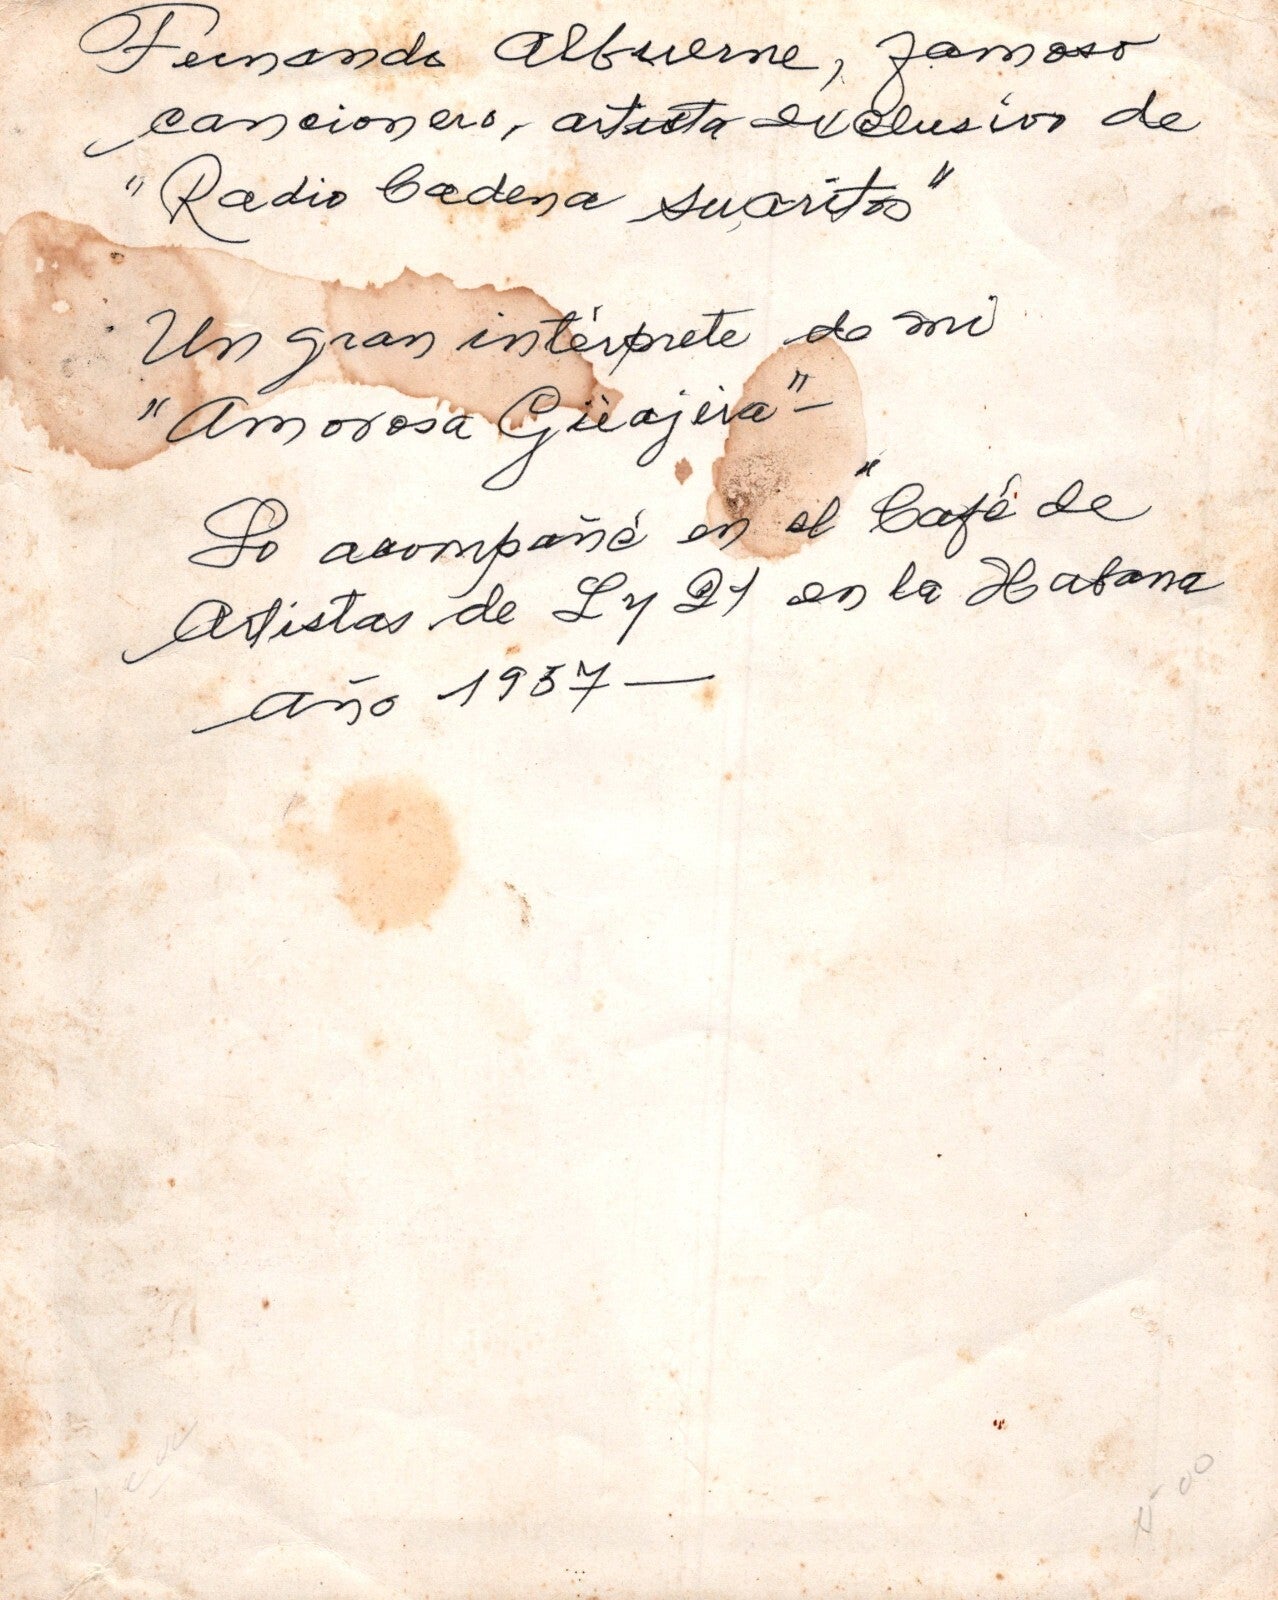 Fernando Albuerne, famoso
cancionero, artista exclusivo de
"Radio Cadena Suaritos"
Un gran intérprete de mi
"Amorosa Güajira"-
Lo acompañé en el "Café de
Artistas de L y 21 en la Habana
año 1957—